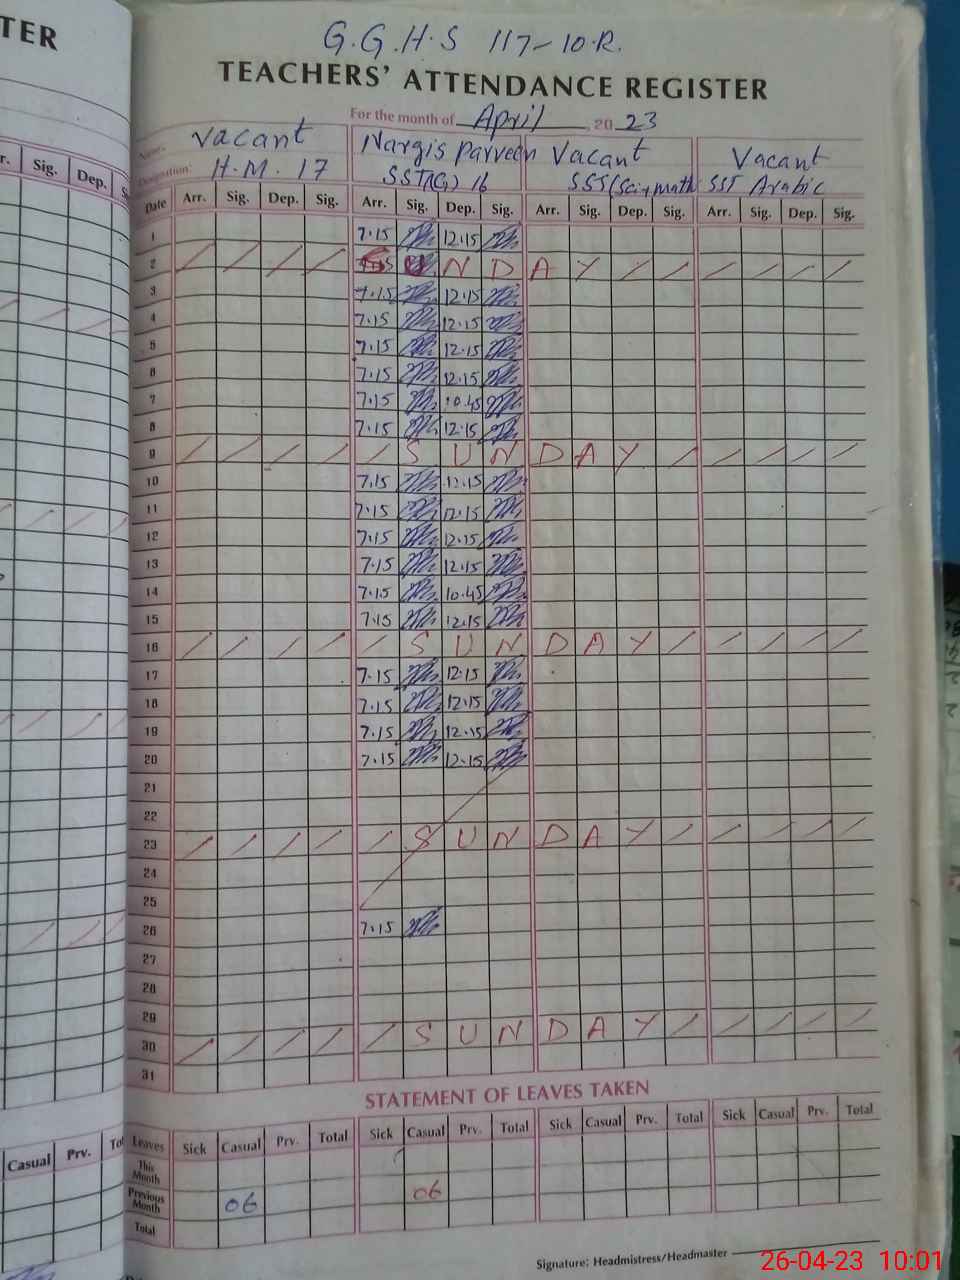 TER
G.G.H.S 117-10.R.
TEACHERS' ATTENDANCE REGISTER
For the month of April, 2023
Name, Vacant Nargis Parveen Vacant Vacant
Designation: H.M. 17 SST(G) 16 SST(Sci+math SST Arabic
r. Sig. Dep. S
Date Arr. Sig. Dep. Sig. Arr. Sig. Dep. Sig. Arr. Sig. Dep. Sig. Arr. Sig. Dep. Sig.
1 7.15 12.15
2 U N D A Y
3 7.15 12.15
4 7.15 12.15
5 7.15 12.15
6 7.15 12.15
7 7.15 10.45
8 7.15 12.15
9 S U N D A Y
10 7.15 12.15
11 7.15 12.15
12 7.15 12.15
13 7.15 12.15
14 7.15 10.45
15 7.15 12.15
16 S U N D A Y
17 7.15 12.15
18 7.15 12.15
19 7.15 12.15
20 7.15 12.15
21
22
23 S U N D A Y
24
25
26 7.15
27
28
29
30 S U N D A Y
31
STATEMENT OF LEAVES TAKEN
Casual Prv. Tot
Leaves Sick Casual Prv. Total Sick Casual Prv. Total Sick Casual Prv. Total Sick Casual Prv. Total
This Month
Previous Month 06 06
Total
Signature: Headmistress/Headmaster
26-04-23 10:01